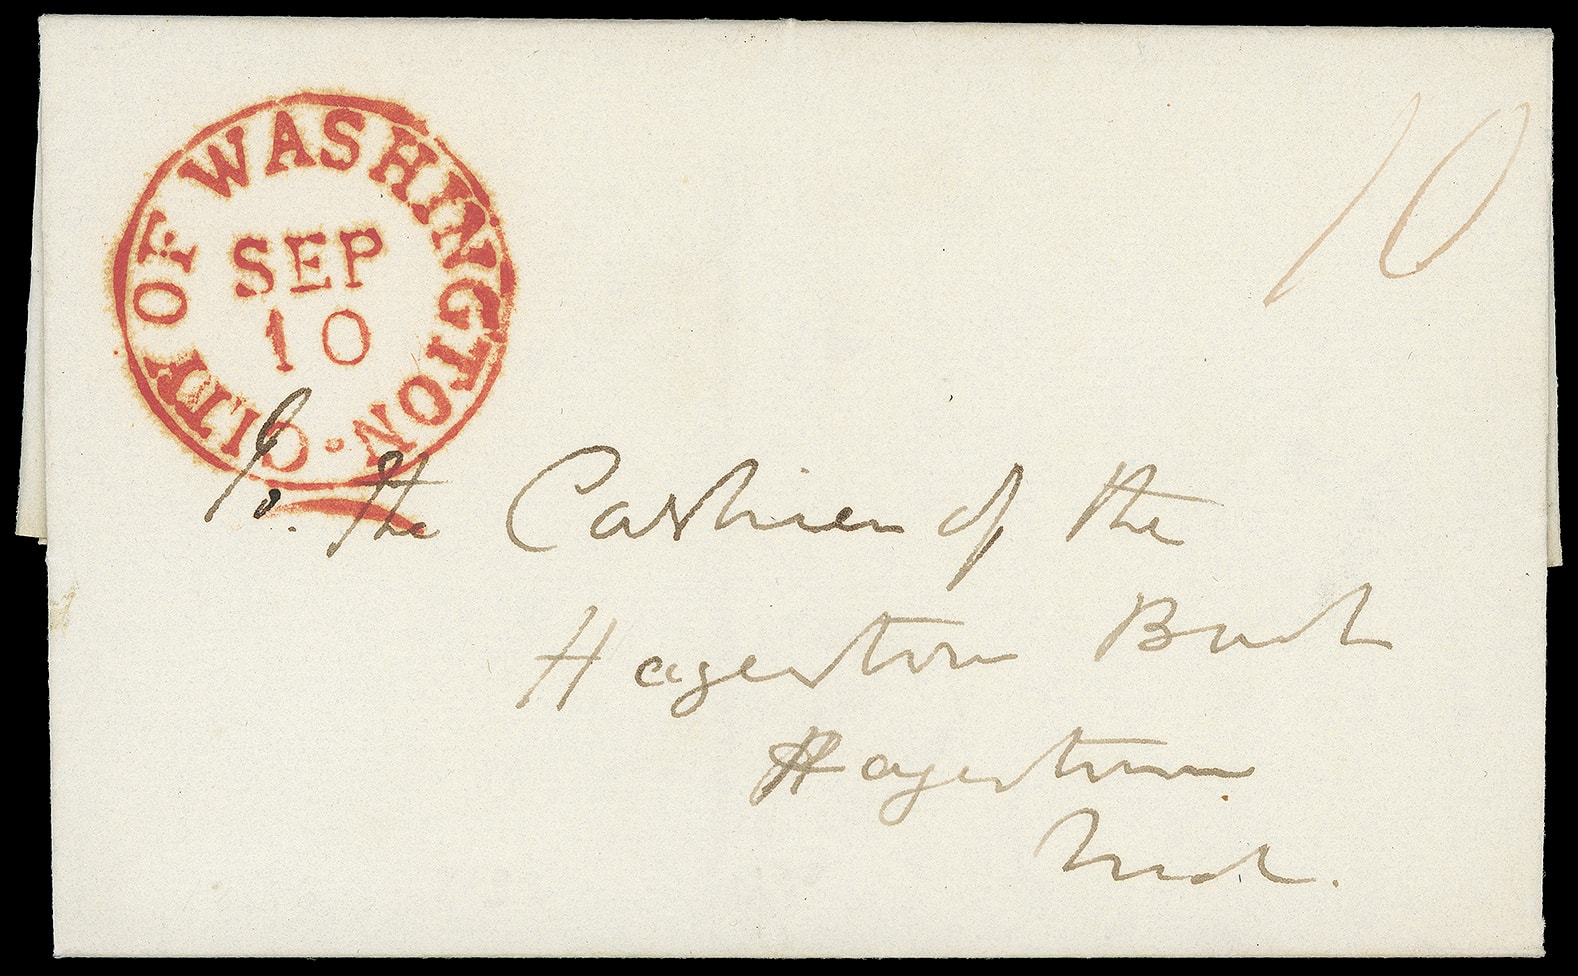 CITY OF WASHINGTON
SEP
10
10
To. The Cashier of the
Hagerstown Bank
Hagerstown
Md.